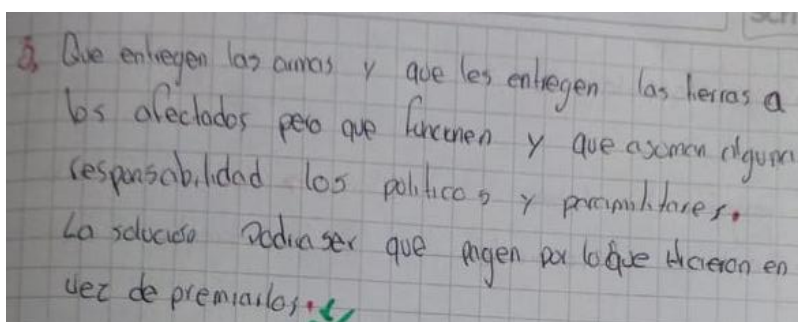 3. Que entregen las armas y que les entregen las tierras a
los afectados pero que funcionen y que asoman alguna
responsabilidad los politicos y paramilitares.
La solucion Podria ser que pagen por lo que Hicieron en
vez de premiarlos.